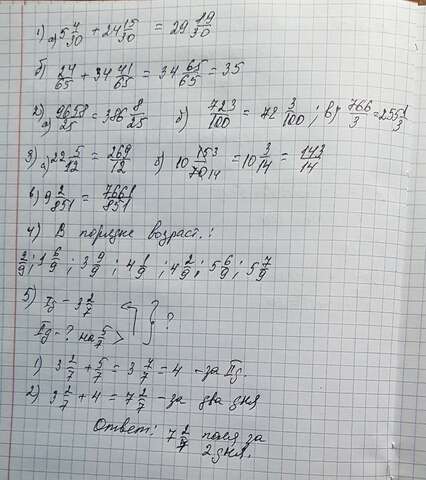 1) а) 5 4/30 + 24 15/30 = 29 19/30
б) 24/65 + 34 41/65 = 34 65/65 = 35
2) а) 9658/25 = 386 8/25 б) 723/100 = 72 3/100 ; в) 766/3 = 255 1/3
3) а) 22 5/12 = 269/12 б) 10 153/7014 = 10 3/14 = 143/14
в) 9 2/851 = 7661/851
4) В порядке возраст.:
2/9; 1 6/9; 3 9/9; 4 1/9; 4 2/9; 5 6/9; 5 7/9
5) I д – 3 2/7
II д – ? на 5/7 > ?
1) 3 2/7 + 5/7 = 3 7/7 = 4 – за II д.
2) 3 2/7 + 4 = 7 2/7 – за два дня
Ответ: 7 2/7 поля за
2 дня.